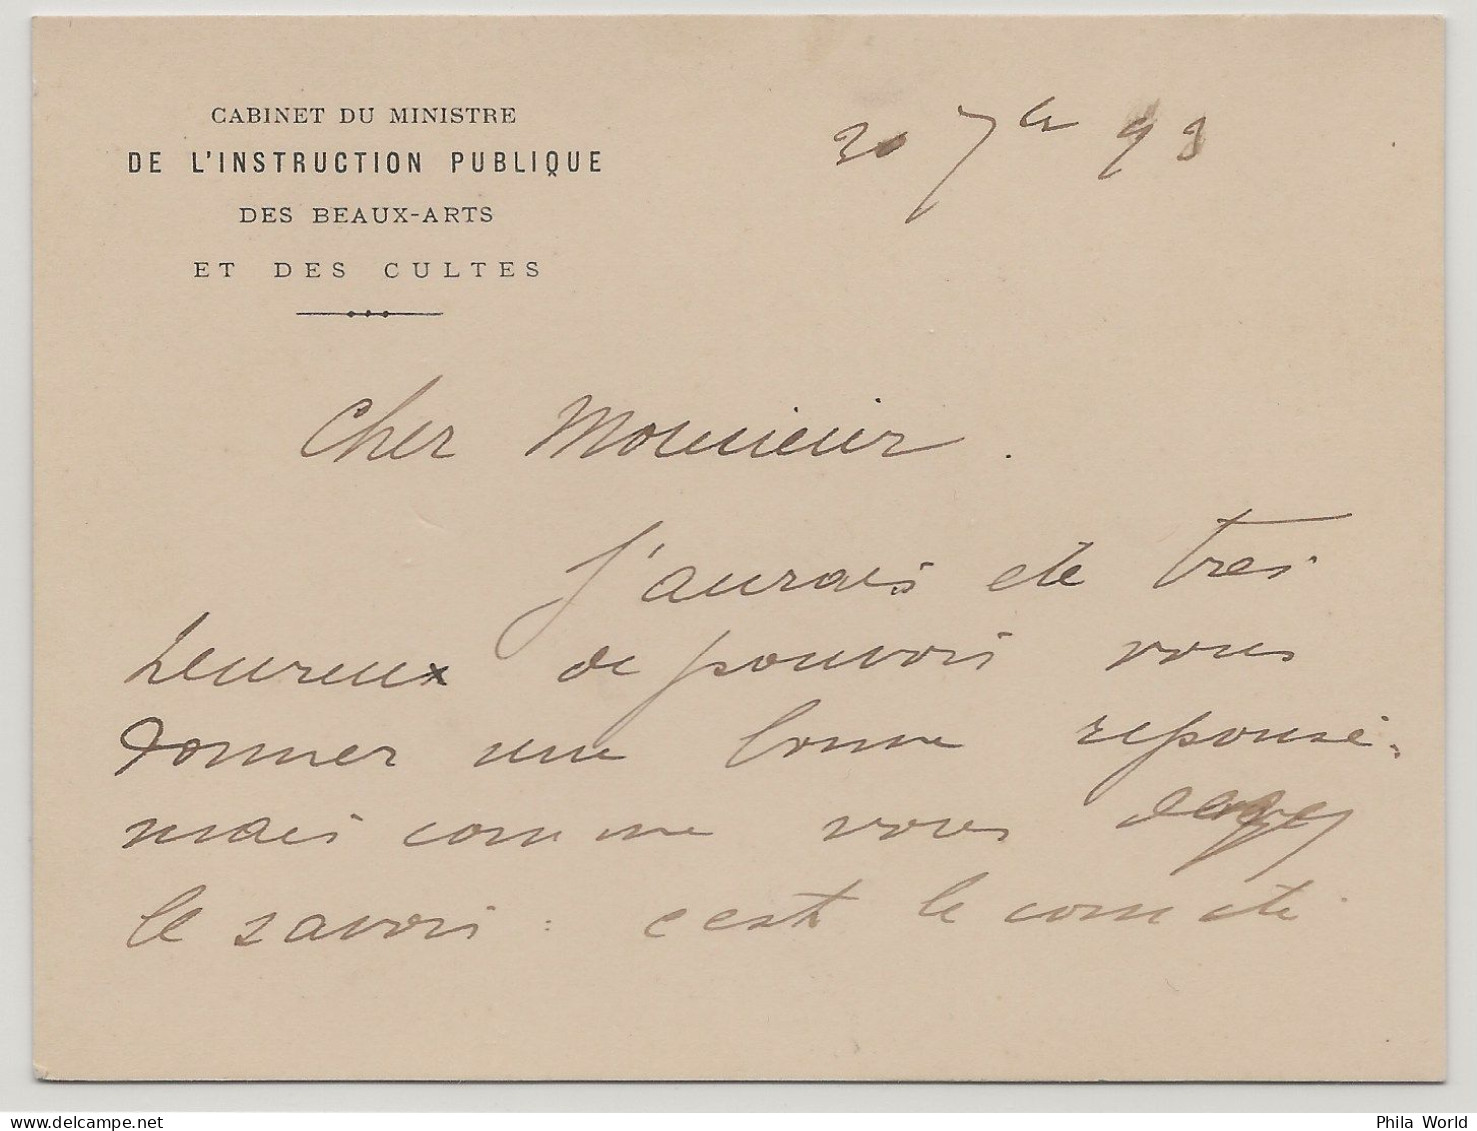 CABINET DU MINISTRE
DE L'INSTRUCTION PUBLIQUE
DES BEAUX-ARTS
ET DES CULTES
30 7bre 93
Cher Monsieur.
J'aurais ete tres
heureux de pouvoir vous
donner une bonne reponse.
mais comme vous devez
le savoir : c'est le comité.
delcampe.net
Phila World